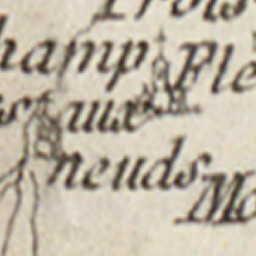 Trois
hamp Fle
s aux
neuds
Mo